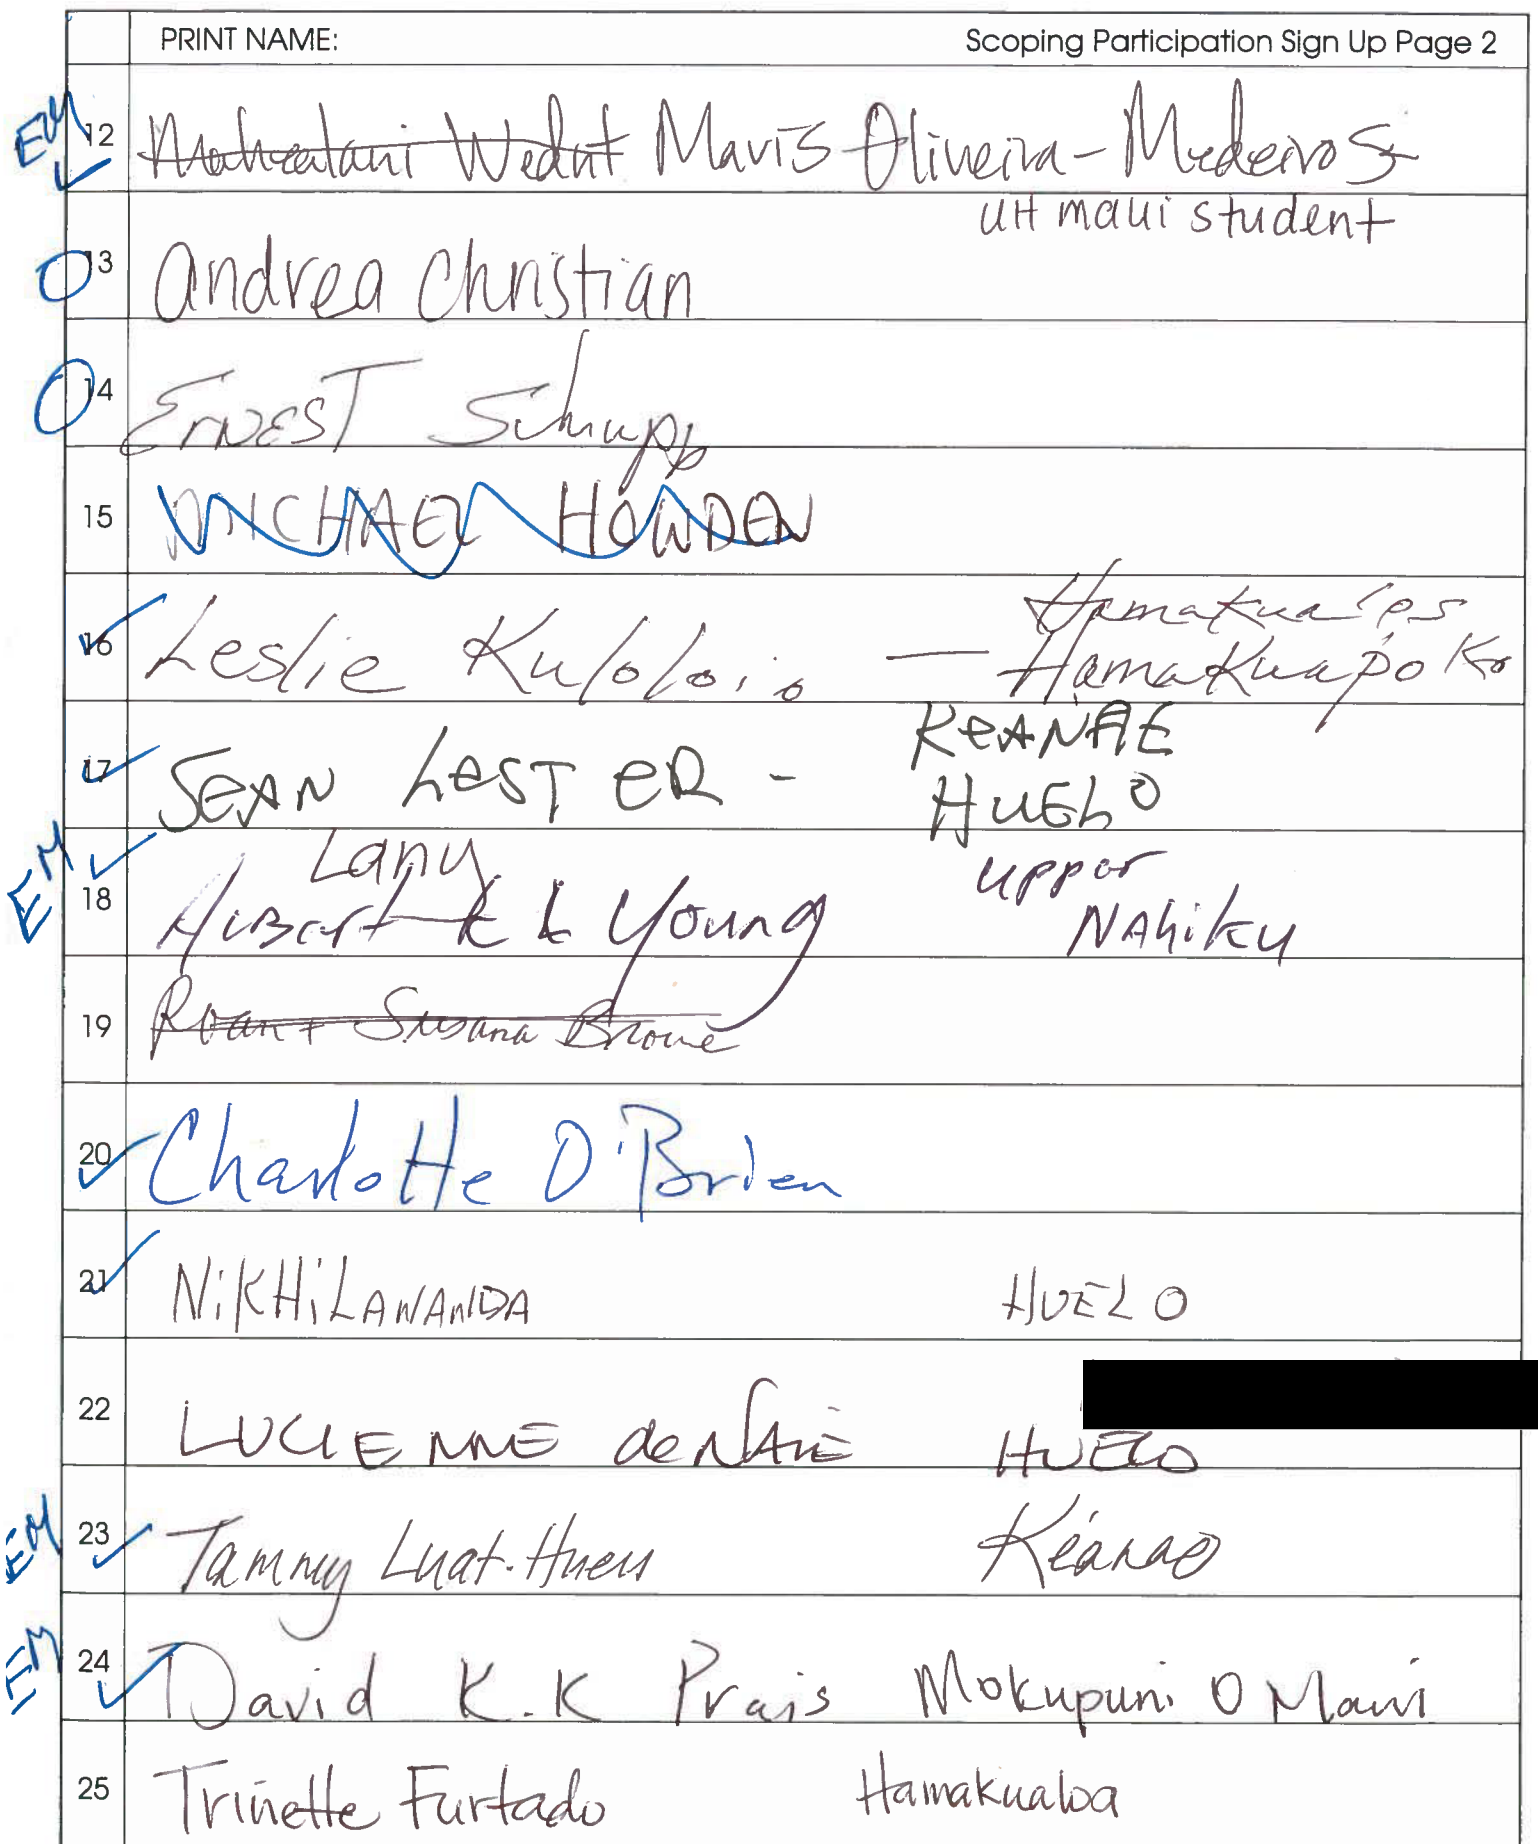 PRINT NAME: Scoping Participation Sign Up Page 2
EM 12 Mahealani Wendt Mavis Oliveira-Medeiros
UH maui student
13 Andrea Christian
14 Ernest Schupp
15 MICHAEL HOWDEN
16 Leslie Kuloloio — Hamakuapoko
17 SEAN LESTER - KEANAE
HUELO
EM 18 K L Young upper
Nahiku
19 Susana Browne
20 Charlotte O'Brien
21 NIKHILANANDA HUELO
22 LUCIENNE deNAIE HUELO
EM 23 Tammy Luat-Hueu Keanae
EM 24 David K.K Prais Mokupuni O Maui
25 Trinette Furtado Hamakualoa